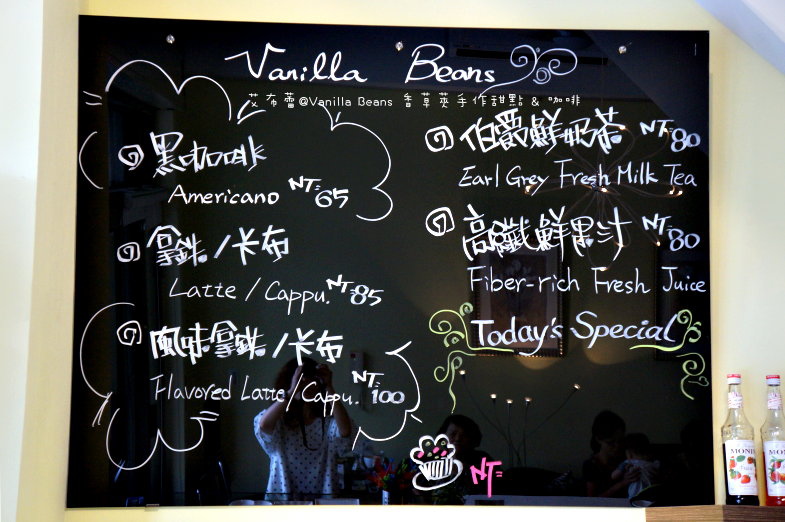 Vanilla Beans
艾布蕾@Vanilla Beans 香草莢手作甜點 & 咖啡
黑咖啡
Americano NT=65
拿鉄/卡布
Latte/Cappu. NT=85
風味拿鉄/卡布
Flavored Latte/Cappu. NT=100
伯爵鮮奶茶 NT=80
Earl Grey Fresh Milk Tea
高纖鮮果汁 NT=80
Fiber-rich Fresh Juice
Today's Special
NT=
MONIN